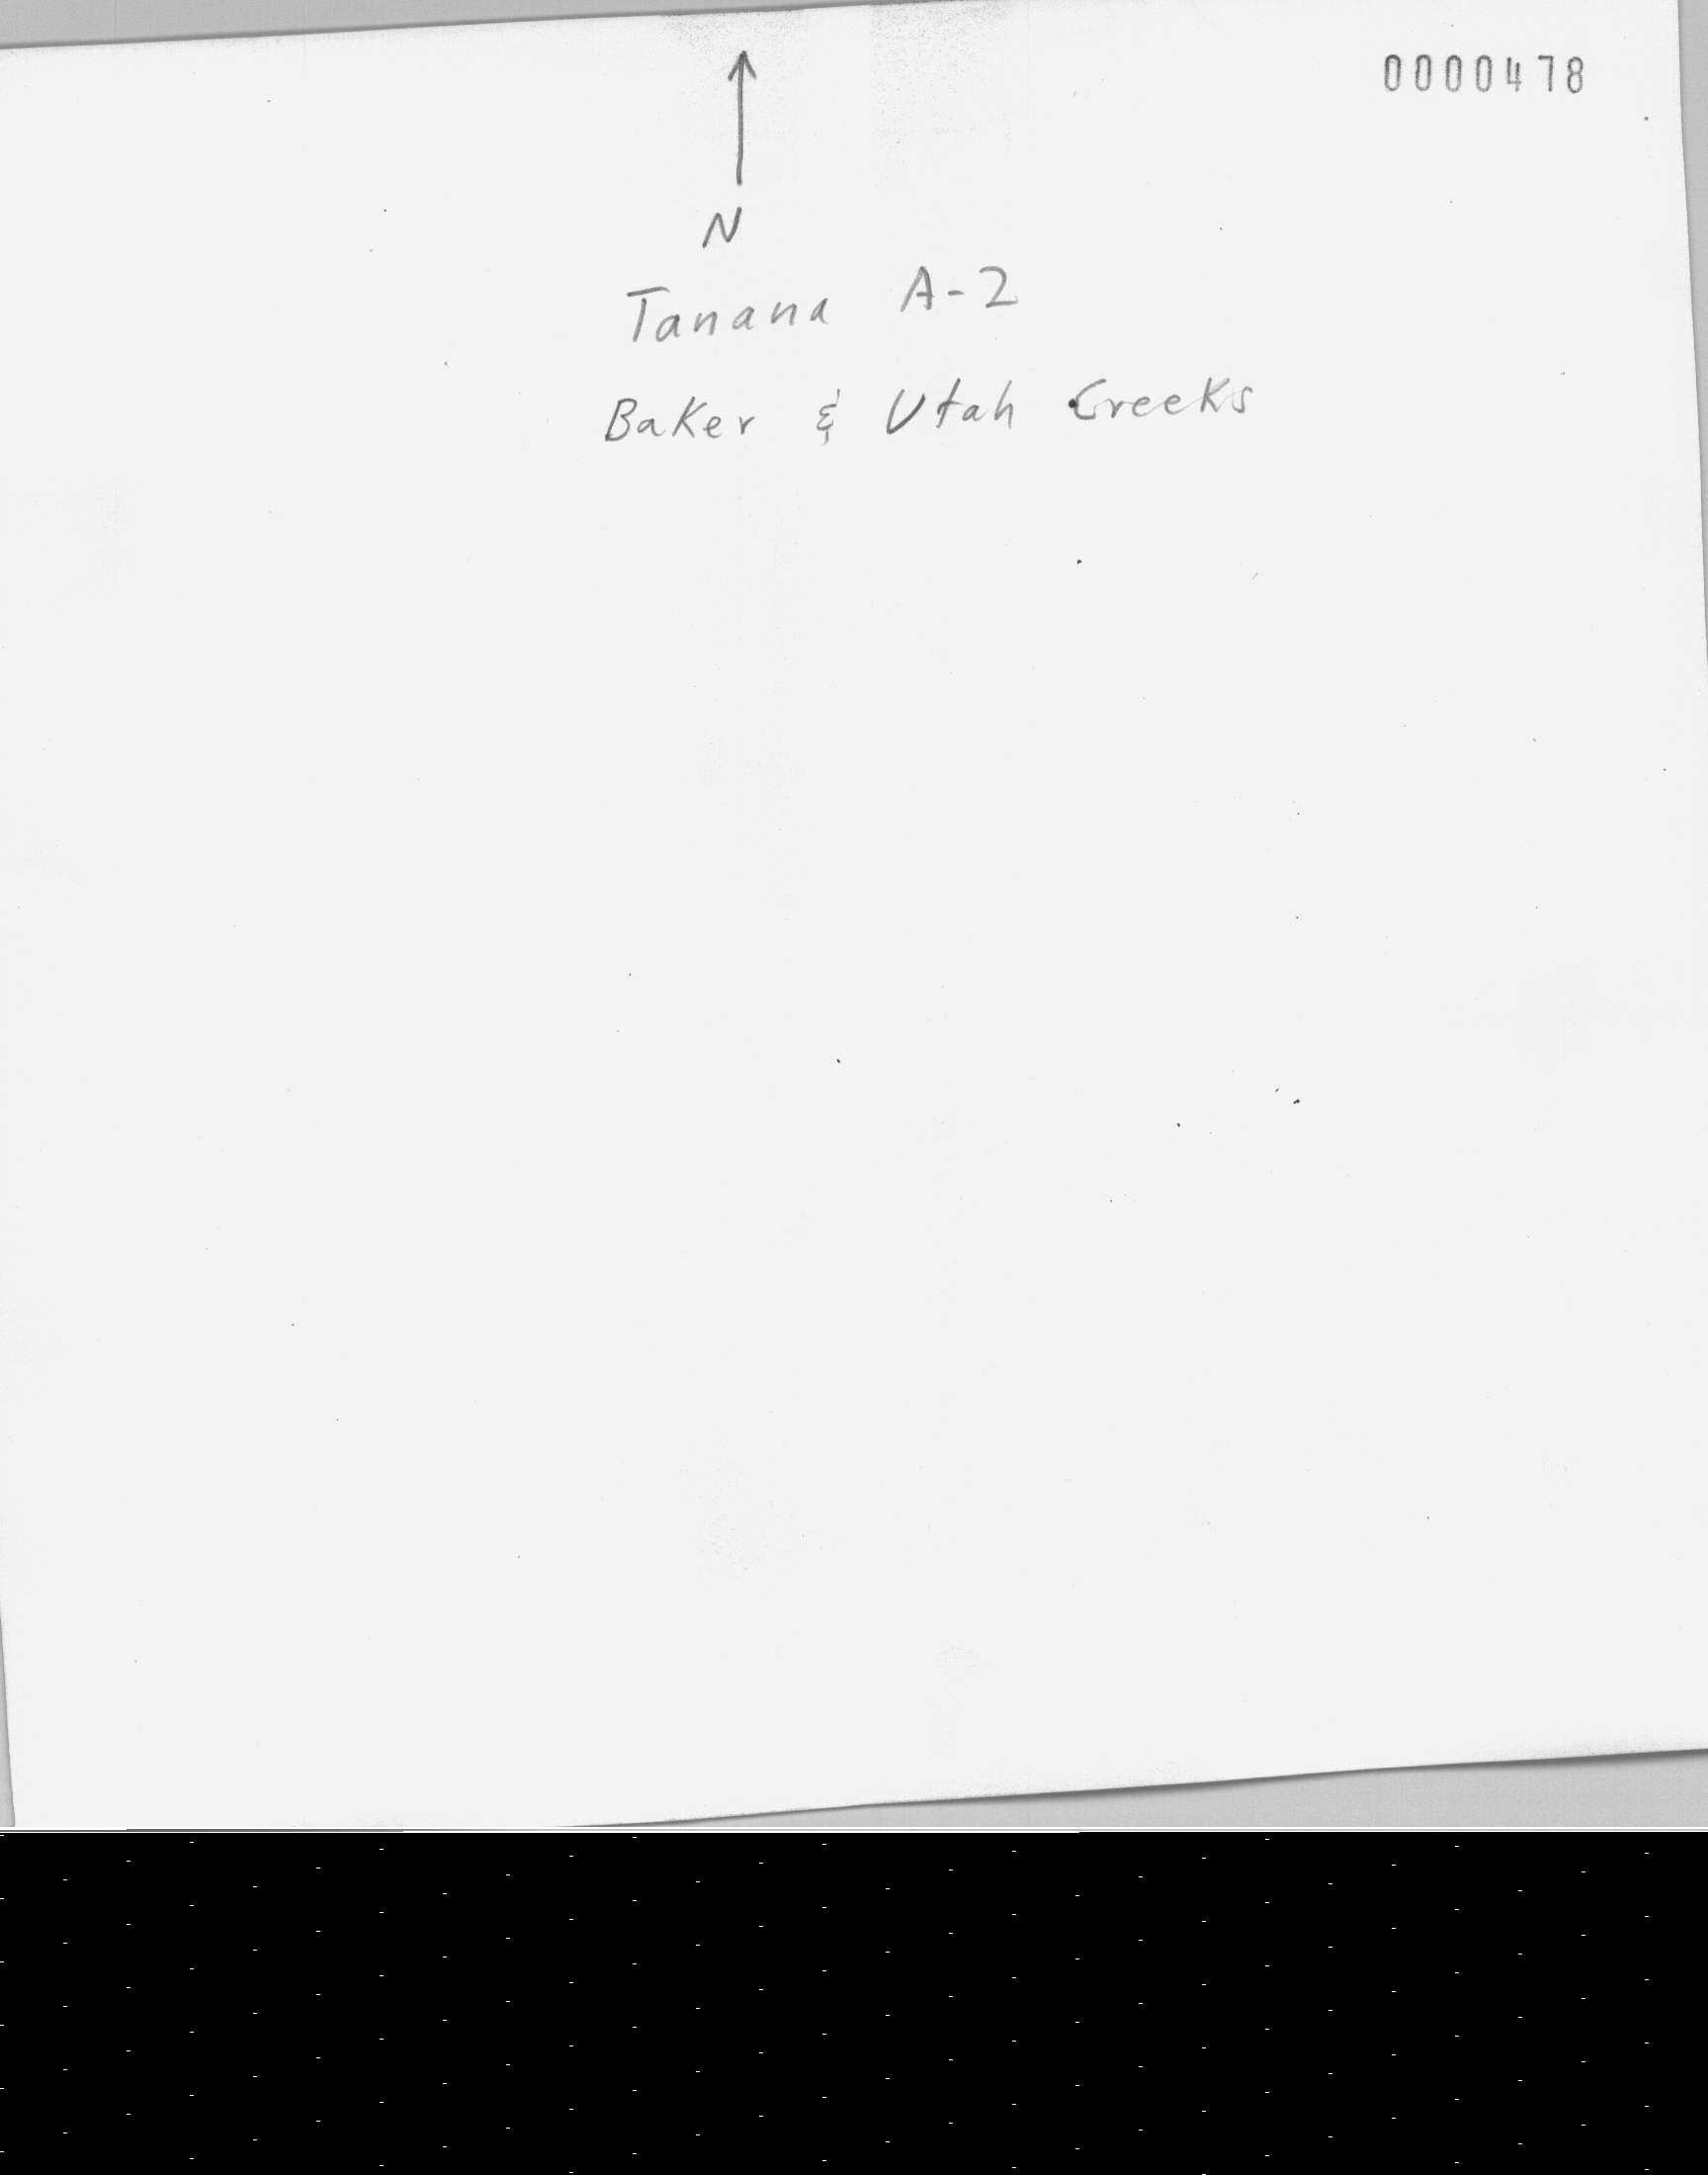 0000478
N
Tanana A-2
Baker & Utah Creeks